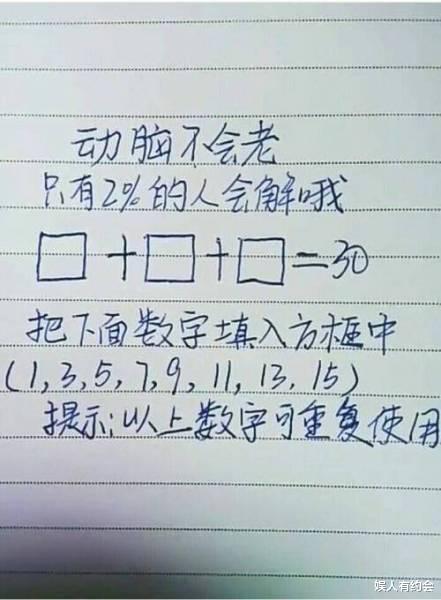 动脑不会老
只有2%的人会解哦
□+□+□=30
把下面数字填入方框中
(1,3,5,7,9,11,13,15)
提示:以上数字可重复使用
娱人有约会